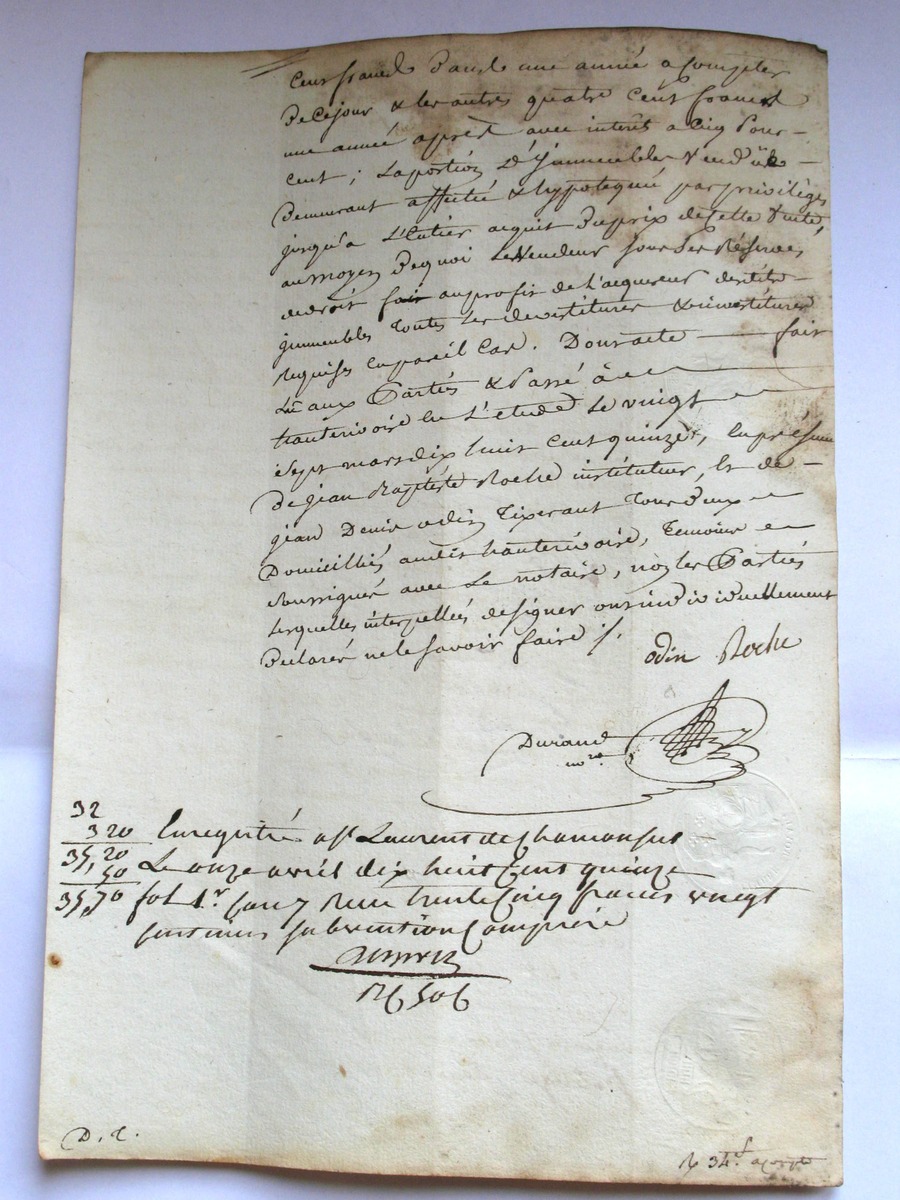 cent francs Dans une année a Compter
De ce jour & les autres quatre Cent francs
une année après avec interêt a Cinq Pour -
cent ; La portion D'Jmmeubles Vendüe -
Demeurant affectée & hypotequée par privilèges
jusqu'a L'Entier acquit Du prix de Cette Vente,
au moyen De quoi Le Vendeur Sous Les Réserves
de droit fait au profit de L'acquereur desdits -
jmmeubles Toutes Les devestitures & investitures
Requises En pareil Cas. Dont acte — fait
Lu aux Parties & Passé à
hauterivoire En L'etude Le vingt
Sept mars dix huit Cent quinze, En présence
De jean Baptiste Roche instituteur, Et de -
jean Denis odin Tixerant Tous Deux
Domiciliés audit hauterivoire, Temoins
Soussignés avec Le notaire, non Les Parties
Lesquelles interpellées de signer ont individuellement
Déclaré ne le Savoir faire ./.
odin Roche
Durand
nore
32
3 20 Enregistré a St Laurent de Chamousset
35,20 Le onze avril dix huit Cent quinze
50
35,70 fol 1.r Case 7 Reçu trente Cinq francs vingt
Centimes Subvention Comprise
R 6 506
D. C.
34.f acompte